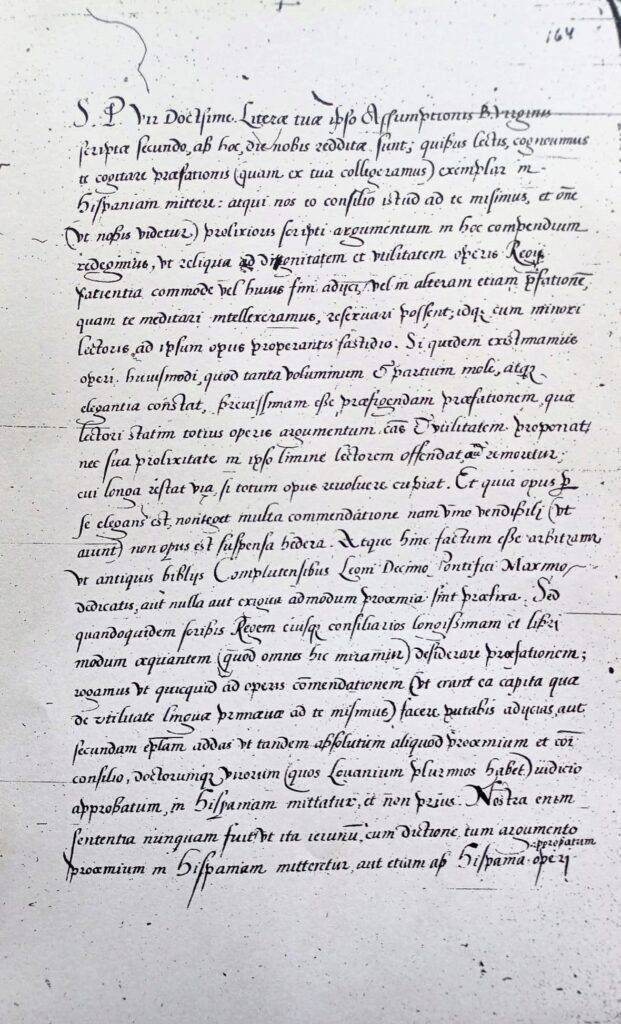 164
S. P. Vir Doctissime. Literæ tuæ ipso Assumptionis B. Virginis
scriptæ secundo, ab hoc, die nobis redditæ sunt; quibus lectis, cognouimus
te cogitare præfationis (quam ex tua collegeramus) exemplar in
Hispaniam mittere: atqui nos eo consilio istud ad te misimus, et
(vt nobis videtur) prolixioris scripti argumentum in hoc compendium
redegimus, vt reliqua ad dignitatem et vtilitatem operis Regij
patientia commode vel huius fini adijci, vel in alteram etiam p̃fationẽ,
quam te meditari intellexeramus, reseruari possent; idq; cum minori
lectoris, ad ipsum opus properantis fastidio. Si quidem existimamus
operi huiusmodi, quod tanta voluminum & partium mole, atq;
elegantia constat, breuissimam esse præfigendam præfationem, quæ
lectori statim totius operis argumentum & vtilitatem proponat,
nec sua prolixitate in ipso limine lectorem offendat, remoretur;
cui longa restat via, si totum opus reuoluere cupiat. Et quia opus
se elegans est, non eget multa commendatione nam vino vendibili (vt
aiunt) non opus est suspensa hedera. Atque hinc factum esse arbitramr
vt antiquis biblijs Complutensibus Leoni Decimo Pontifici Maximo
dedicatis, aut nulla aut exigua admodum proœmia sint præfixa. Sed
quandoquidem scribis Regem eiusq; consiliarios longissimam et libri
modum æquantem (quod omnes hic miramur) desiderare præfationem;
rogamus vt quicquid ad operis cõmendationem (vt erant ea capita quæ
de vtilitate linguæ primæuæ ad te misimus) facere putabis adijcias, aut
secundam epl̃am addas vt tandem absolutum aliquod proœmium et cõi
consilio, doctorumq; virorum (quos Louanium plurimos habet) iudicio
approbatum, in Hispaniam mittatur, et non prius. Nostra enim
sententia nunquam fuit, vt ita ieiunũ, cum dictione, tum argumento
approbatum
proœmium in Hispaniam mitteretur, aut etiam ab Hispania operi